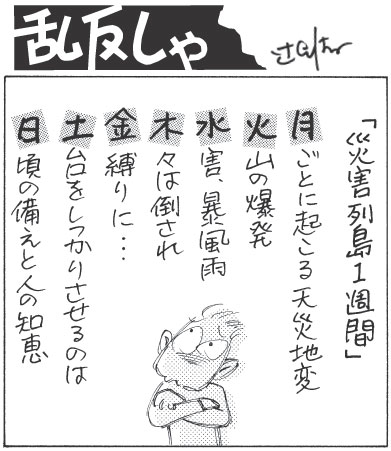 乱反しゃ
「災害列島1週間」
月ごとに起こる天災地変
火山の爆発
水害、暴風雨
木々は倒され
金縛りに…
土台をしっかりさせるのは
日頃の備えと人の知恵